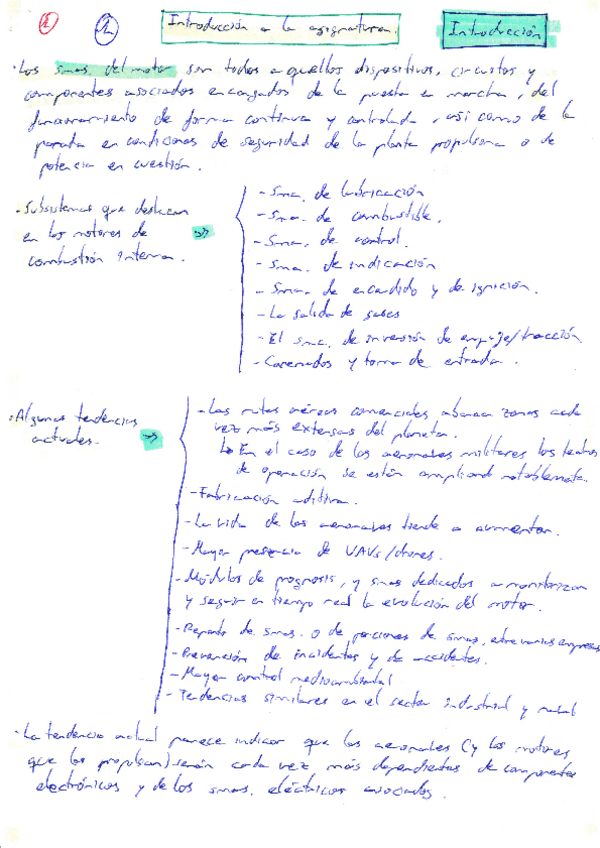 1 1 Introducción a la asignatura. Introducción
· Los smas. del motor son todos aquellos dispositivos, circuitos y
componentes asociados encargados de la puesta en marcha, del
funcionamiento de forma continua y controlada, así como de la
parada en condiciones de seguridad de la planta propulsora o de
potencia en cuestión.
- Sma. de lubricación
· Subsistemas que destacan - Sma. de combustible.
en los motores de ⇒ - Sma. de control.
combustión interna. - Sma. de indicación
- Sma. de encendido y de ignición.
- La salida de gases
- El sma. de inversión de empuje/tracción
- Carenados y toma de entrada.
· Algunas tendencias - Las rutas aéreas comerciales abarcan zonas cada
actuales. ⇒ vez más extensas del planeta.
↳ En el caso de las aeronaves militares los teatros
de operación se están ampliando notablemente.
- Fabricación aditiva.
- La vida de las aeronaves tiende a aumentar.
- Mayor presencia de UAVs/drones.
- Módulos de prognosis, y smas dedicados a monitorizar
y seguir en tiempo real la evolución del motor.
- Reparto de smas. o de porciones de smas, entre varias empresas
- Prevención de incidentes y de accidentes.
- Mayor control medioambiental
- Tendencias similares en el sector industrial y naval
· La tendencia actual parece indicar que las aeronaves (y los motores
que las propulsan) serán cada vez más dependientes de componentes
electrónicos y de los smas. eléctricos asociados.